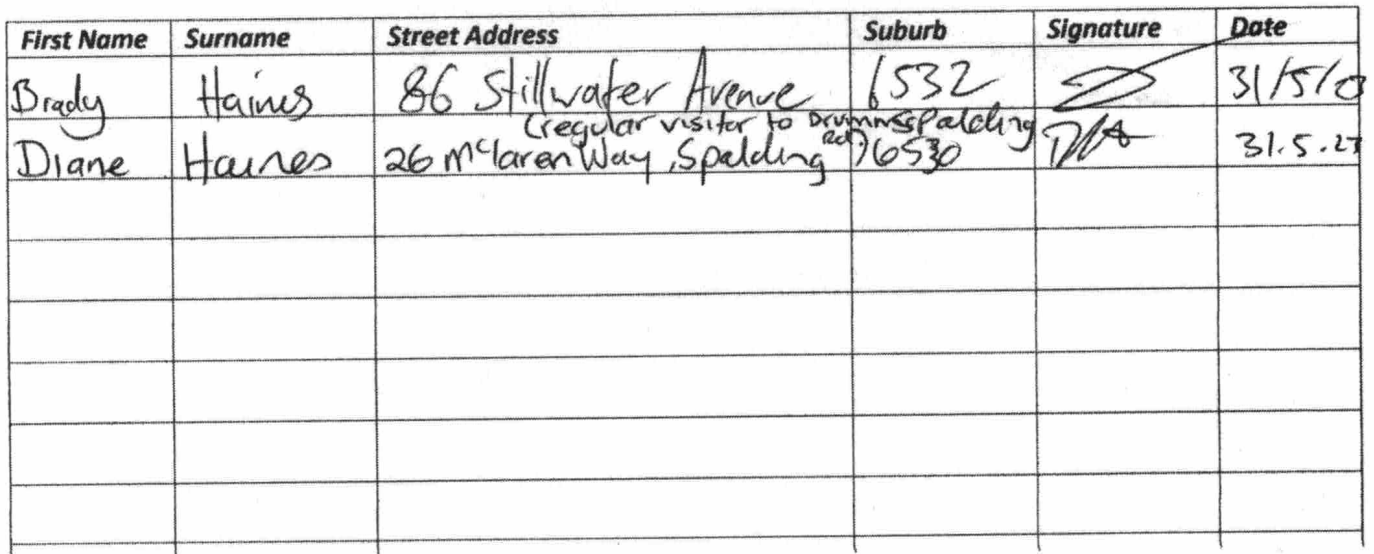 First Name Surname Street Address Suburb Signature Date
Brady Haines 86 Stillwater Avenue 6532 31/5/23
(regular visitor to Drummes Rd) Spalding
Diane Haines 26 McLaren Way, Spalding 6530 31.5.23